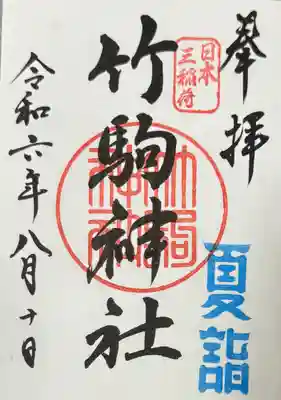 奉拝
日本
三稲荷
夏詣
竹駒神社
令和六年八月十日